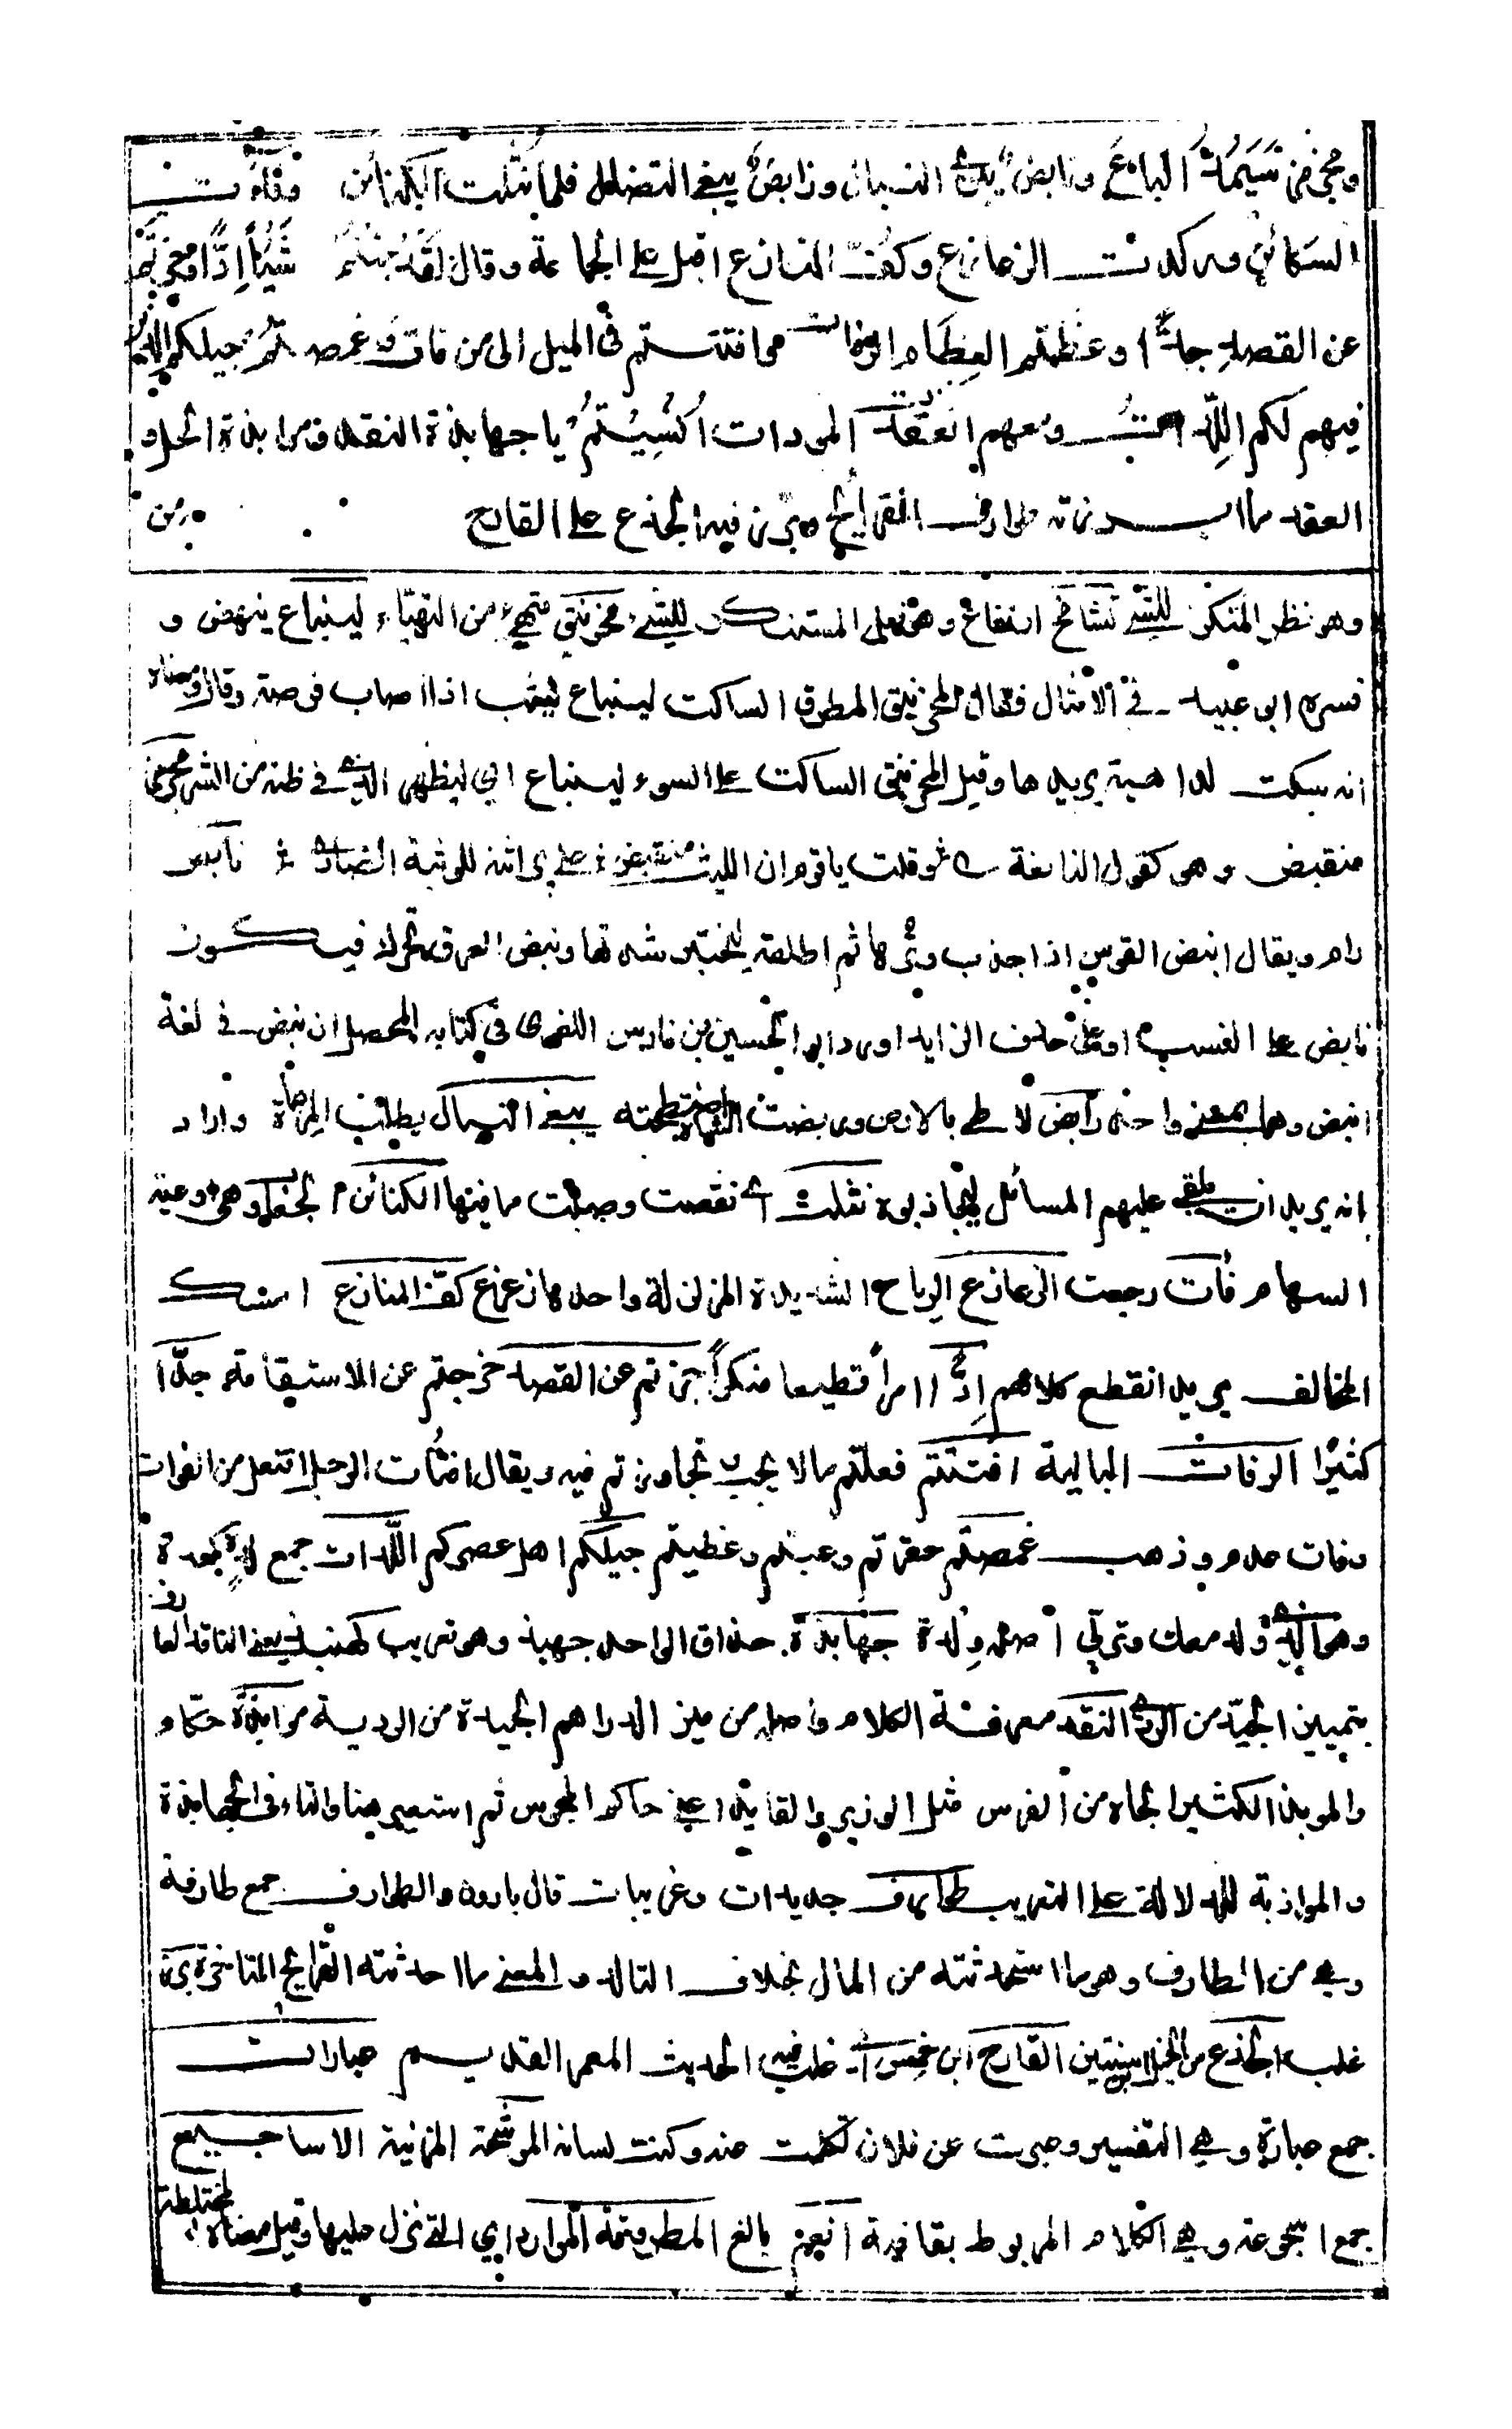 ومجرمز سيمد الباع ونابض يبري النبال ورابض يبغي النضال فلما نثلت الكنائن وفاءت
السكائن وركدت الزعازع وكف المنازع اقبل على الجماعة وقال لقد جئتم شيئا ادا وجرتم
عن القصد جدا وعظمتم العظام الرفات وافتتم في الميل الى من فات وغمصتم جيلكم الذين
فيهم لكم اللدات ومعهم انعقدت المودات أنسيتم يا جهابذة النقد وموابذة الحل و
العقد ما ابرزته طوارف القرائح وبرز فيه الجذع على القارح من
وهو نظر المتكبر تشامخ انتفاخ وهو فعل المستنكر للشيء مخرنبق متهيئ من التهيّاء لينباع ينهض و
فسره ابو عبيد في الامثال فقال المخرنبق المطرق الساكت لينباع ليثب اذا اصاب فرصة وقال ومعناه
انه سكت لداهية يريدها وقيل المخرنبق الساكت على السوء لينباع اي ليظهر الذي في ظنه من الشر مجرمز
منقبض وهو كقول النابغة وقلت يا قوم ان الليث منقبض على براثنه للوثبة الضاري نابض
رام ويقال انبض القوس اذا جذب وترها ثم اطلقه ليختبر شدتها ونبض العرق تحرك فيكون
نابض على النسب او على حذف الزايد اورد ابو الحسين بن فارس اللغوي في كتابه المجمل ان نبض في لغة
انبض وهما بمعنى واحد رابض لاطئ بالارض وربضت يبغي النضال يطلب المراماة واراد
انه يريد ان يلقي عليهم المسائل ليجاذبوه نثلت اي نفضت وصبت ما فيها الكنائن الجعاب وهي اوعية
السهام فاءت رجعت الزعازع الرياح الشديدة المزلزلة واحدها زعزع كف المنازع امسك
المخالف يريد انقطع كلامهم ادا امرا فظيعا منكرا جرتم عن القصد خرجتم عن الاستقامة جدا
كثيرا الرفات البالية افتتم فعلتم ما لا يجب تجاوزتم فيه ويقال افتات الرجل افتعل من الفوات
وفات عدم وذهب غمصتم حقرتم وعبتم وغطيتم جيلكم اهل عصركم اللدات جمع لدة كعدة
وهو الذي ولد معك وتربي اصله ولدة جهابذة حذاق الواحد جهبذ وهو تعريب كهبد يعني الناقد العارف
بتمييز الجيد من الردي النقد معرفة الكلام واصله من ميز الدراهم الجيدة من الردية موابذة حكام
والموبذ الكثير الجاه من الفرس مثل الوزير والقايد اعني حاكم المجوس ثم استعير هنا والتاء في الجهابذة
والموابذة للدلالة على التعريب طوارف جديدات وغريبات قال بارون والطوارف جمع طارفة
وهي من الطارف وهو ما استحدثته من المال بخلاف التالد والمعنى ما احدثته القرائح المتاخرة برز
غلب الجذع من الخيل ابن سنتين القارح ابن خمس اي غلب فيه الحديث المعمر القديم عبارات
جمع عبارة وهي التفسير وعبرت عن فلان تكلمت عنه وكنت لسانه الموشحة المزينة الاساجيع
جمع اسجوعة وهي الكلام المربوط بقافية انعم بالغ المطروقة الموارد اي التي نزل عليها وقيل معناه المختلطة